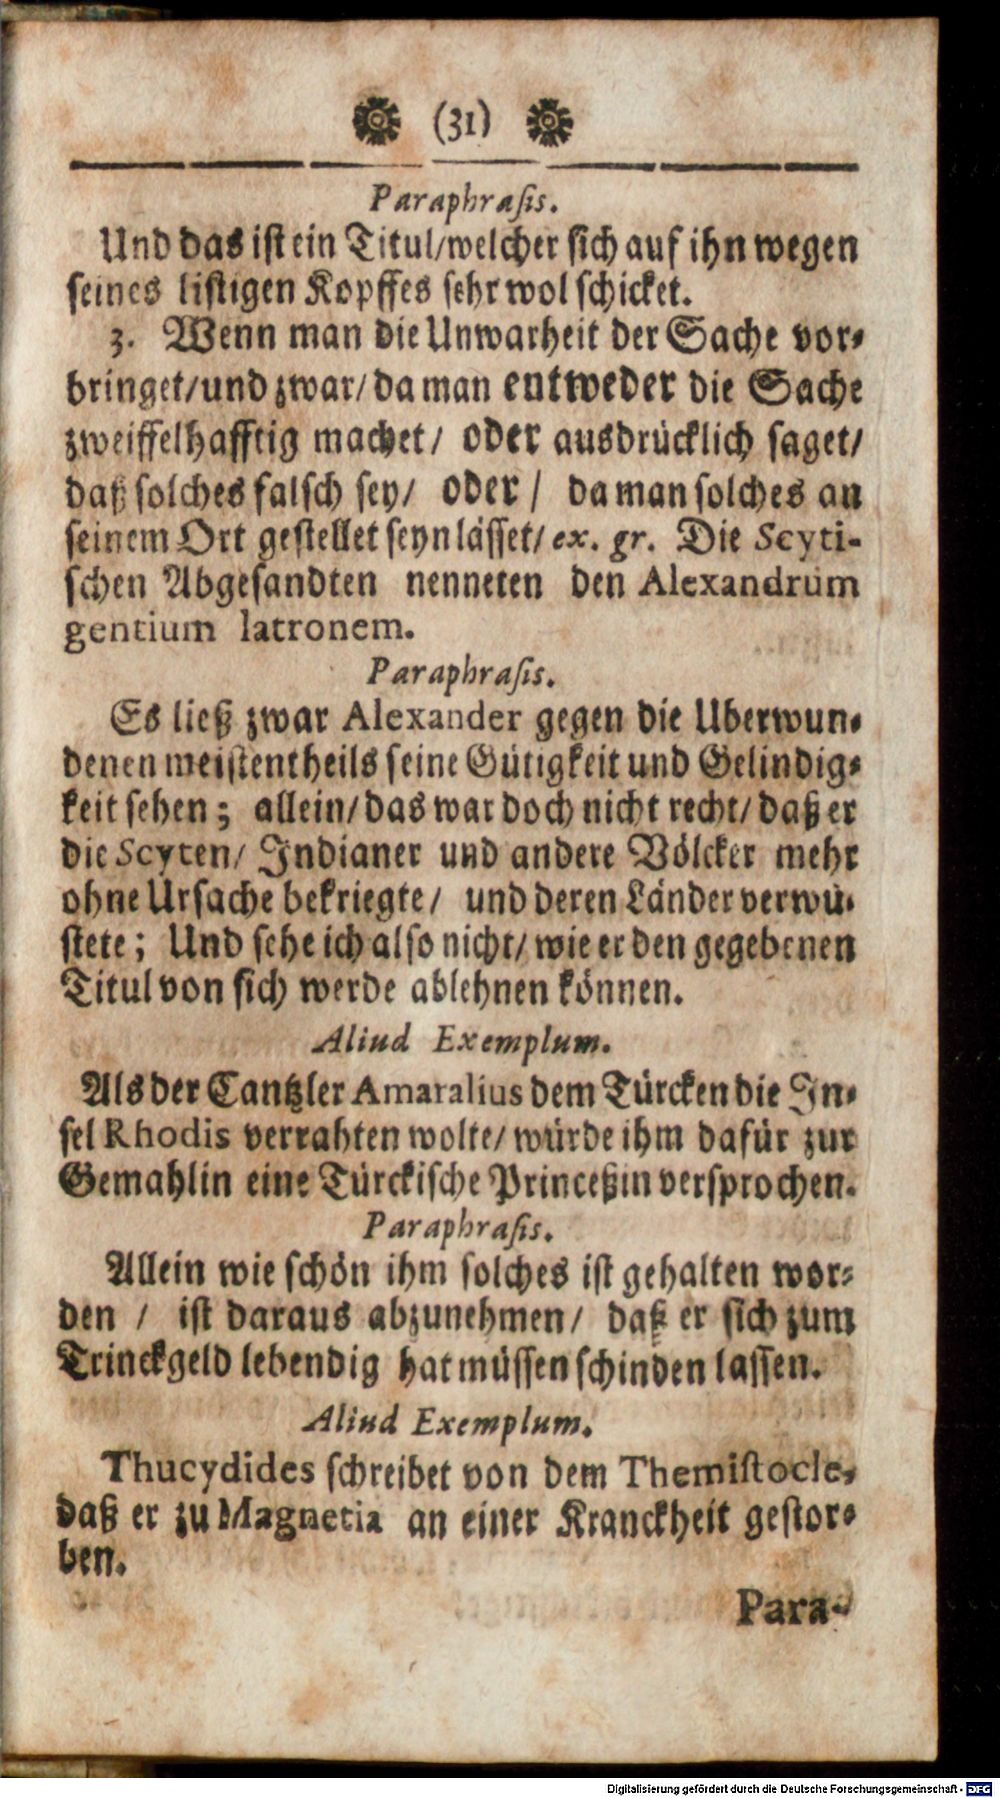 (31)
Paraphrasis.
Und das ist ein Titul/welcher sich auf ihn wegen
seines listigen Kopffes sehr wol schicket.
3. Wenn man die Unwarheit der Sache vor-
bringet/und zwar/da man entweder die Sache
zweiffelhafftig machet/ oder ausdrücklich saget/
daß solches falsch sey/ oder / da man solches an
seinem Ort gestellet seyn lässet/ ex. gr. Die Scyti-
schen Abgesandten nenneten den Alexandrum
gentium latronem.
Paraphrasis.
Es ließ zwar Alexander gegen die Uberwun-
denen meistentheils seine Gütigkeit und Gelindig-
keit sehen; allein/das war doch nicht recht/daß er
die Scyten/ Indianer und andere Völcker mehr
ohne Ursache bekriegte/ und deren Länder verwü-
stete; Und sehe ich also nicht/wie er den gegebenen
Titul von sich werde ablehnen können.
Aliud Exemplum.
Als der Cantzler Amaralius dem Türcken die In-
sel Rhodis verrahten wolte/würde ihm dafür zur
Gemahlin eine Türckische Princeßin versprochen.
Paraphrasis.
Allein wie schön ihm solches ist gehalten wor-
den / ist daraus abzunehmen/ daß er sich zum
Trinckgeld lebendig hat müssen schinden lassen.
Aliud Exemplum.
Thucydides schreibet von dem Themistocle,
daß er zu Magnetia an einer Kranckheit gestor-
ben.
Para-
Digitalisierung gefördert durch die Deutsche Forschungsgemeinschaft - DFG